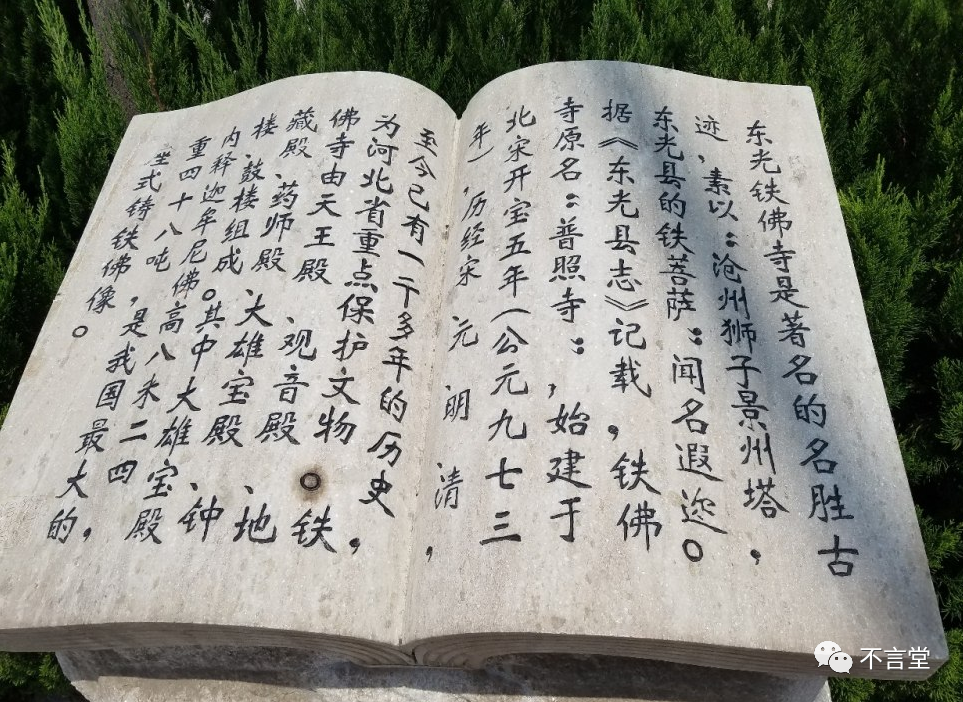 东光铁佛寺是著名的名胜古
迹、素以:沧州狮子景州塔,
东光县的铁菩萨:闻名遐迩。
据《东光县志》记载,铁佛
寺原名:普照寺:,始建于
北宋开宝五年(公元九七三
年),历经宋元明清,
至今已有一千多年的历史,
为河北省重点保护文物。铁
佛寺由天王殿、观音殿、地
藏殿、药师殿、大雄宝殿、钟
楼、鼓楼组成。其中大雄宝殿
内释迦牟尼佛高八米二四
重四十八吨,是我国最大的,
坐式铸铁佛像。
不言堂